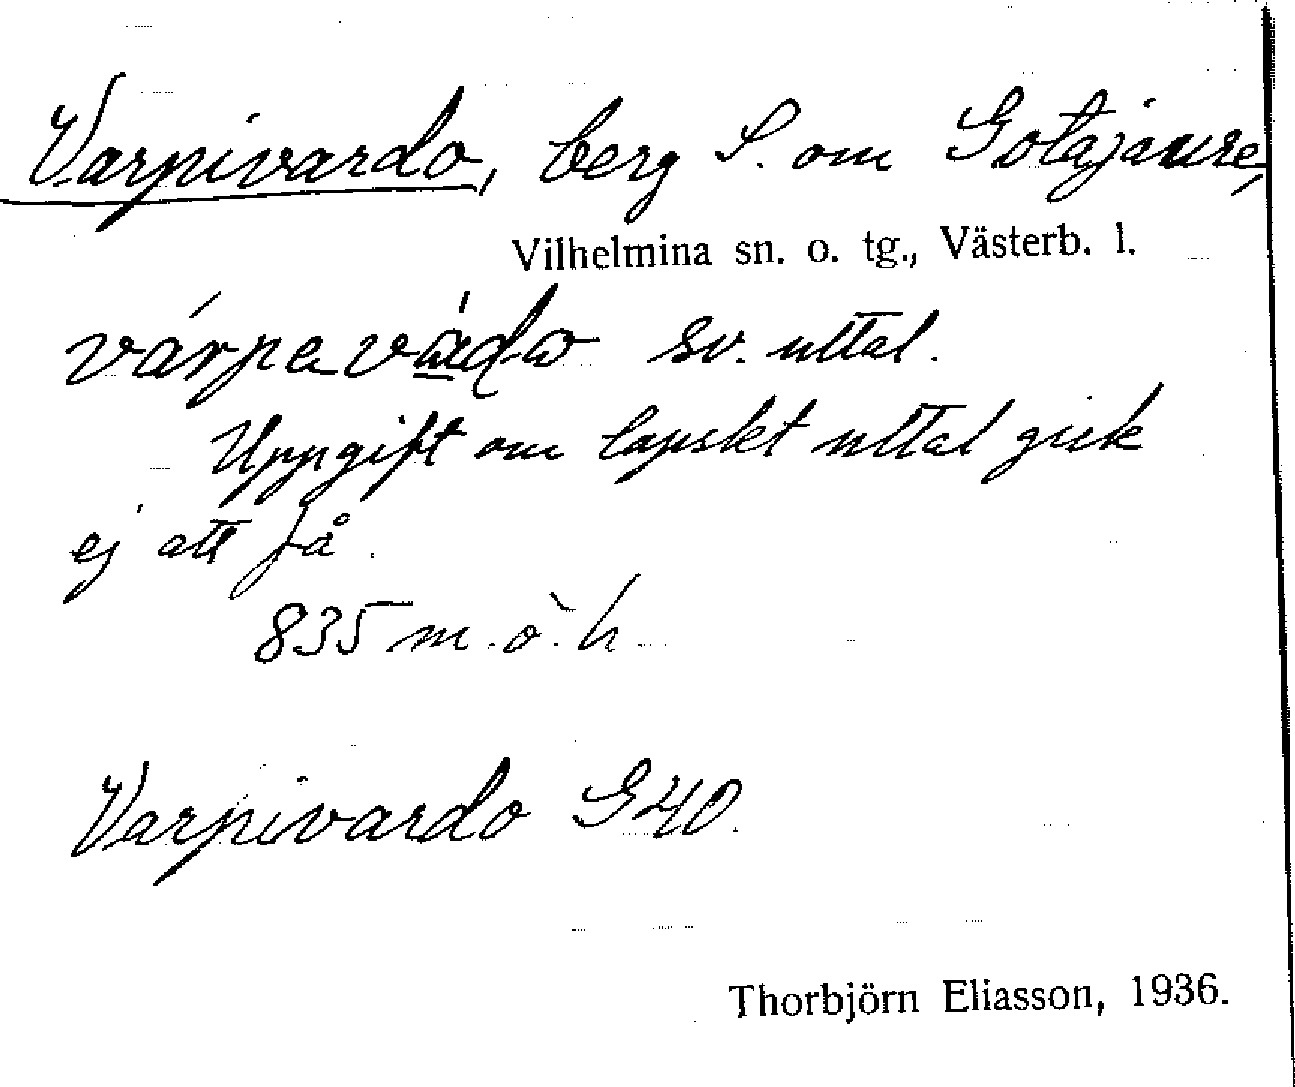 Varpivardo, berg S. om Gotajaure,
Vilhelmina sn. o. tg., Västerb. l.
várpavádω sv. uttal.
Uppgift om lapskt uttal gick
ej att få.
835 m.ö.h.
Varpivardo G40.
Thorbjörn Eliasson, 1936.